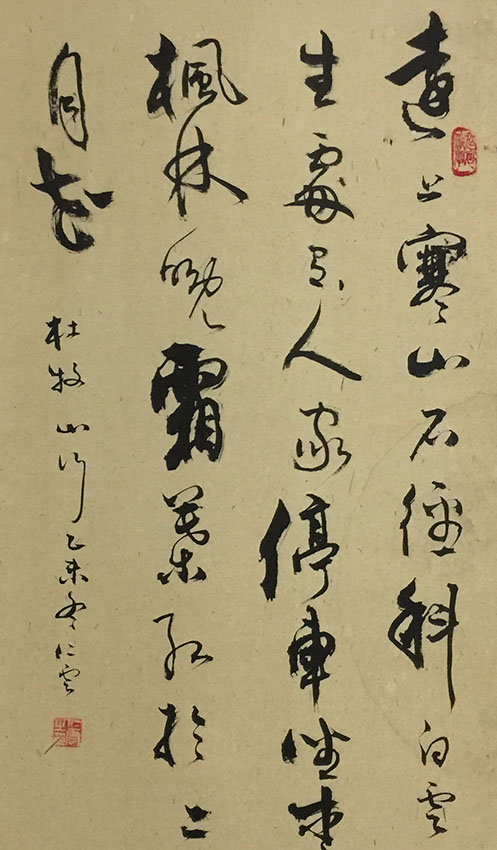 遠上寒山石徑斜白雲
生處有人家停車坐愛
楓林晚霜葉紅於二
月花
杜牧山行乙未冬仁雲